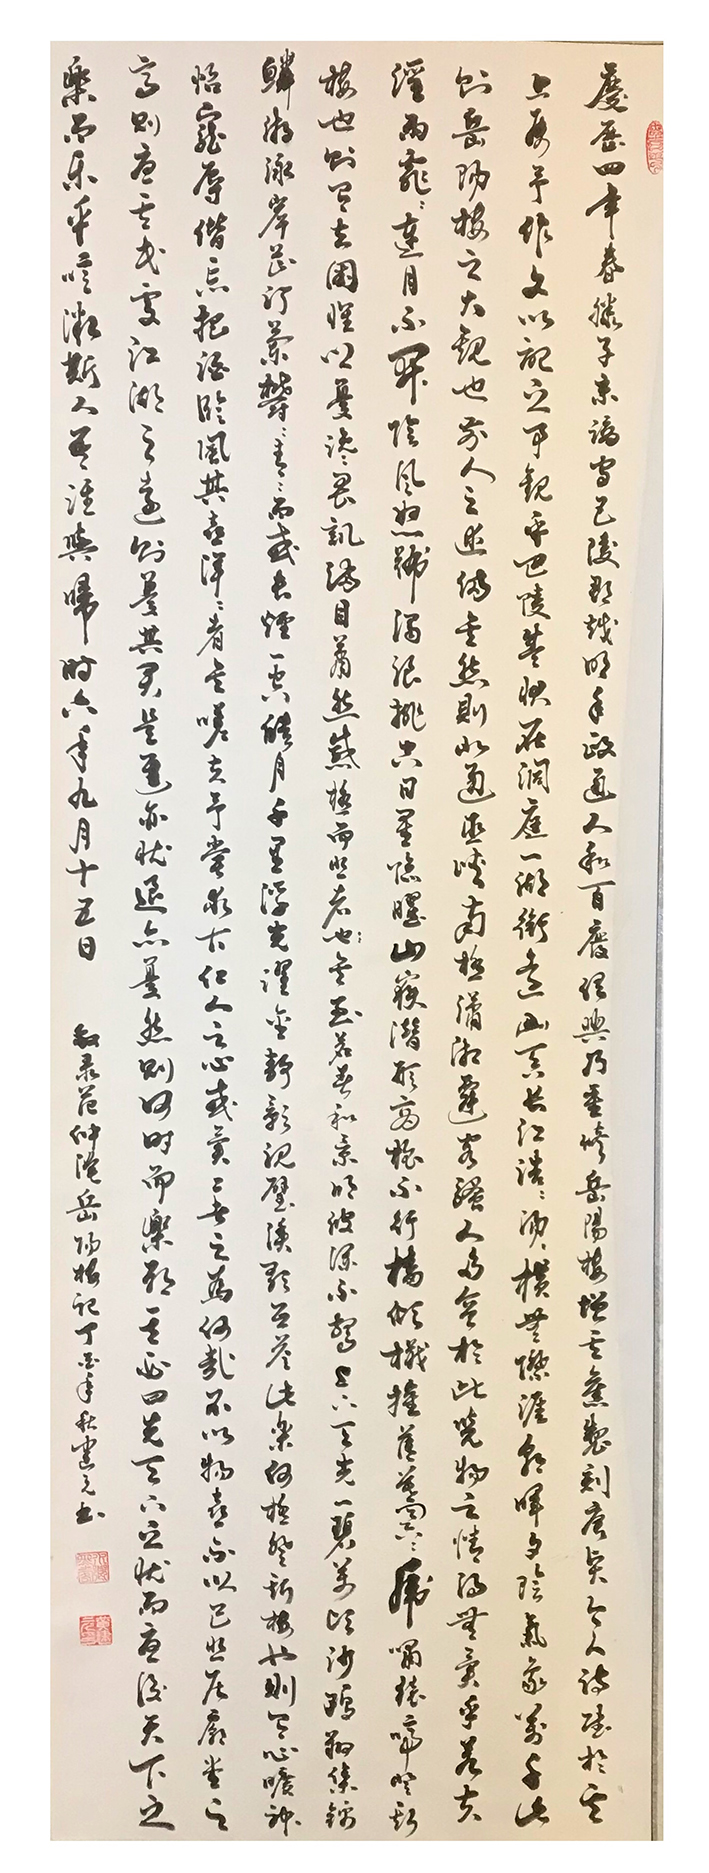 慶歷四年春滕子京謫守巴陵郡越明年政通人和百廢俱興乃重修岳陽樓增其舊製刻唐賢今人詩賦於其
上屬予作文以記之予觀乎巴陵勝狀在洞庭一湖銜遠山吞長江浩浩湯湯橫無際涯朝暉夕陰氣象萬千此
則岳陽樓之大觀也前人之述備矣然則北通巫峽南極瀟湘遷客騷人多會於此覽物之情得無異乎若夫
淫雨霏霏連月不開陰風怒號濁浪排空日星隱曜山嶽潛形商旅不行檣傾檝摧薄暮冥冥虎嘯猿啼登斯
樓也則有去國懷鄉憂讒畏譏滿目蕭然感極而悲者也矣至若春和景明波瀾不驚上下天光一碧萬頃沙鷗翔集錦
鱗游泳岸芷汀蘭鬱鬱青青而或長煙一空皓月千里浮光躍金靜影沉璧漁歌互答此樂何極登斯樓也則有心曠神
怡寵辱偕忘把酒臨風其喜洋洋者矣嗟夫予嘗求古仁人之心或異二者之為何哉不以物喜不以己悲居廟堂之
高則憂其民處江湖之遠則憂其君是進亦憂退亦憂然則何時而樂耶其必曰先天下之憂而憂後天下之
樂而樂乎噫微斯人吾誰與歸時六年九月十五日 敬录范仲淹岳陽樓記丁酉年秋建元书